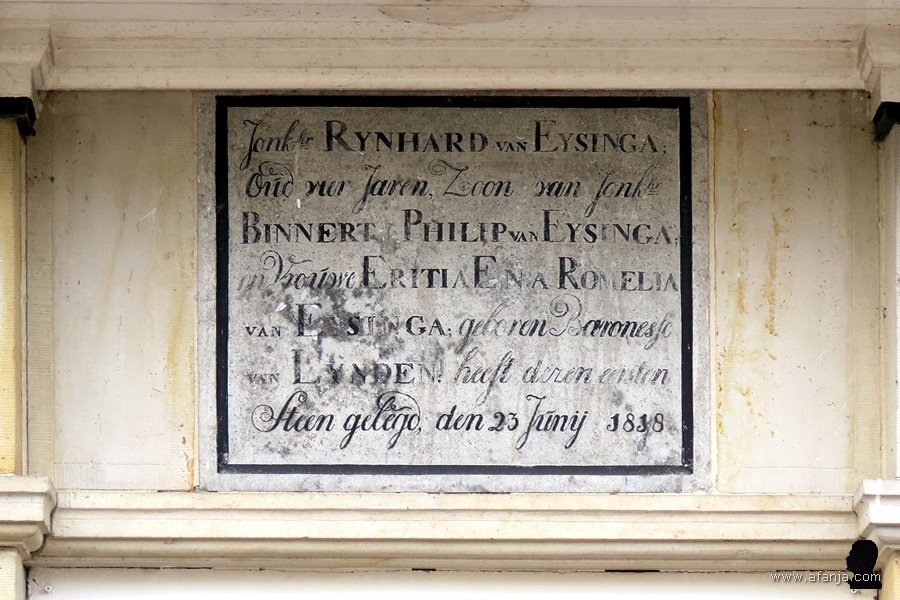 Jonkhr RYNHARD van EYSINGA;
Oud vier Jaren, Zoon van Jonkhr
BINNERT PHILIP van EYSINGA;
en Vrouwe ERITIA ENA ROMELIA
van EYSINGA; geboren Baronesse
van LYNDEN! heeft dezen eersten
Steen gelegd, den 23 Junij 1818
www.afanja.com